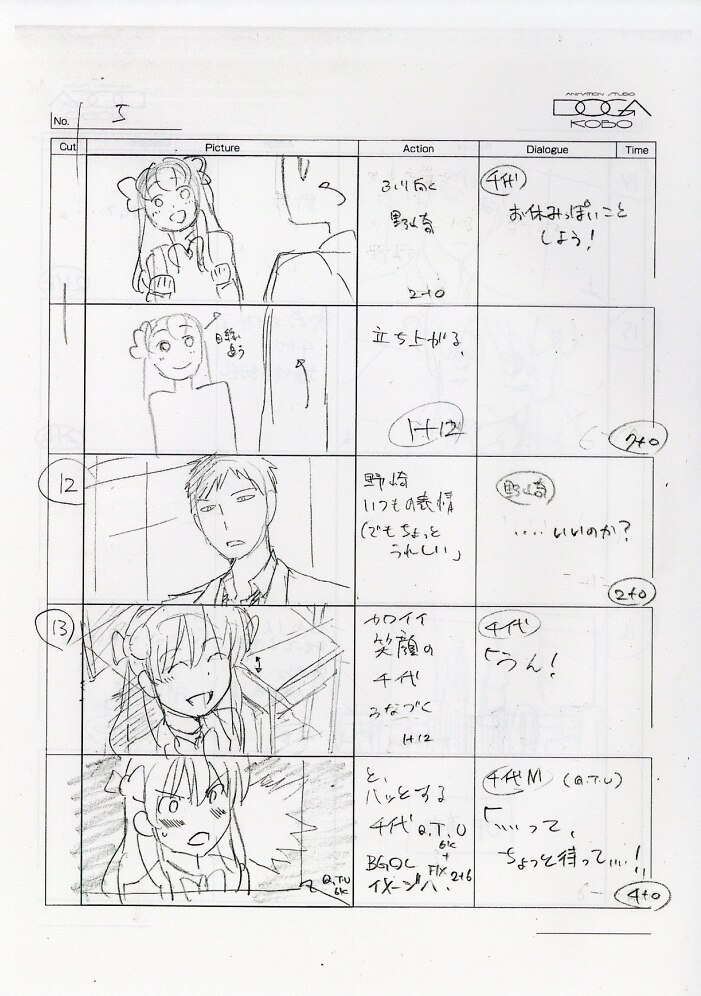 No. 5
ANIMATION STUDIO
DOGA
KOBO
Cut
Picture
Action
Dialogue
Time
ふり向く
野崎
2+0
千代
お休みっぽいこと
しよう!
目線
追う
立ち上がる
1+12
12
野崎
いつもの表情
(でもちょっと
うれしい」
野崎
....いいのか?
2+0
13
カワイイ
笑顔の
千代
うなづく
1+12
千代
「うん!
と、
ハッとする
千代 Q.T.U
6K
+
BG OL
Fix 2+6
イメージへ.
Q.T.U
6K
千代M (Q.T.U)
「....って、
ちょっと待って....!
4+0